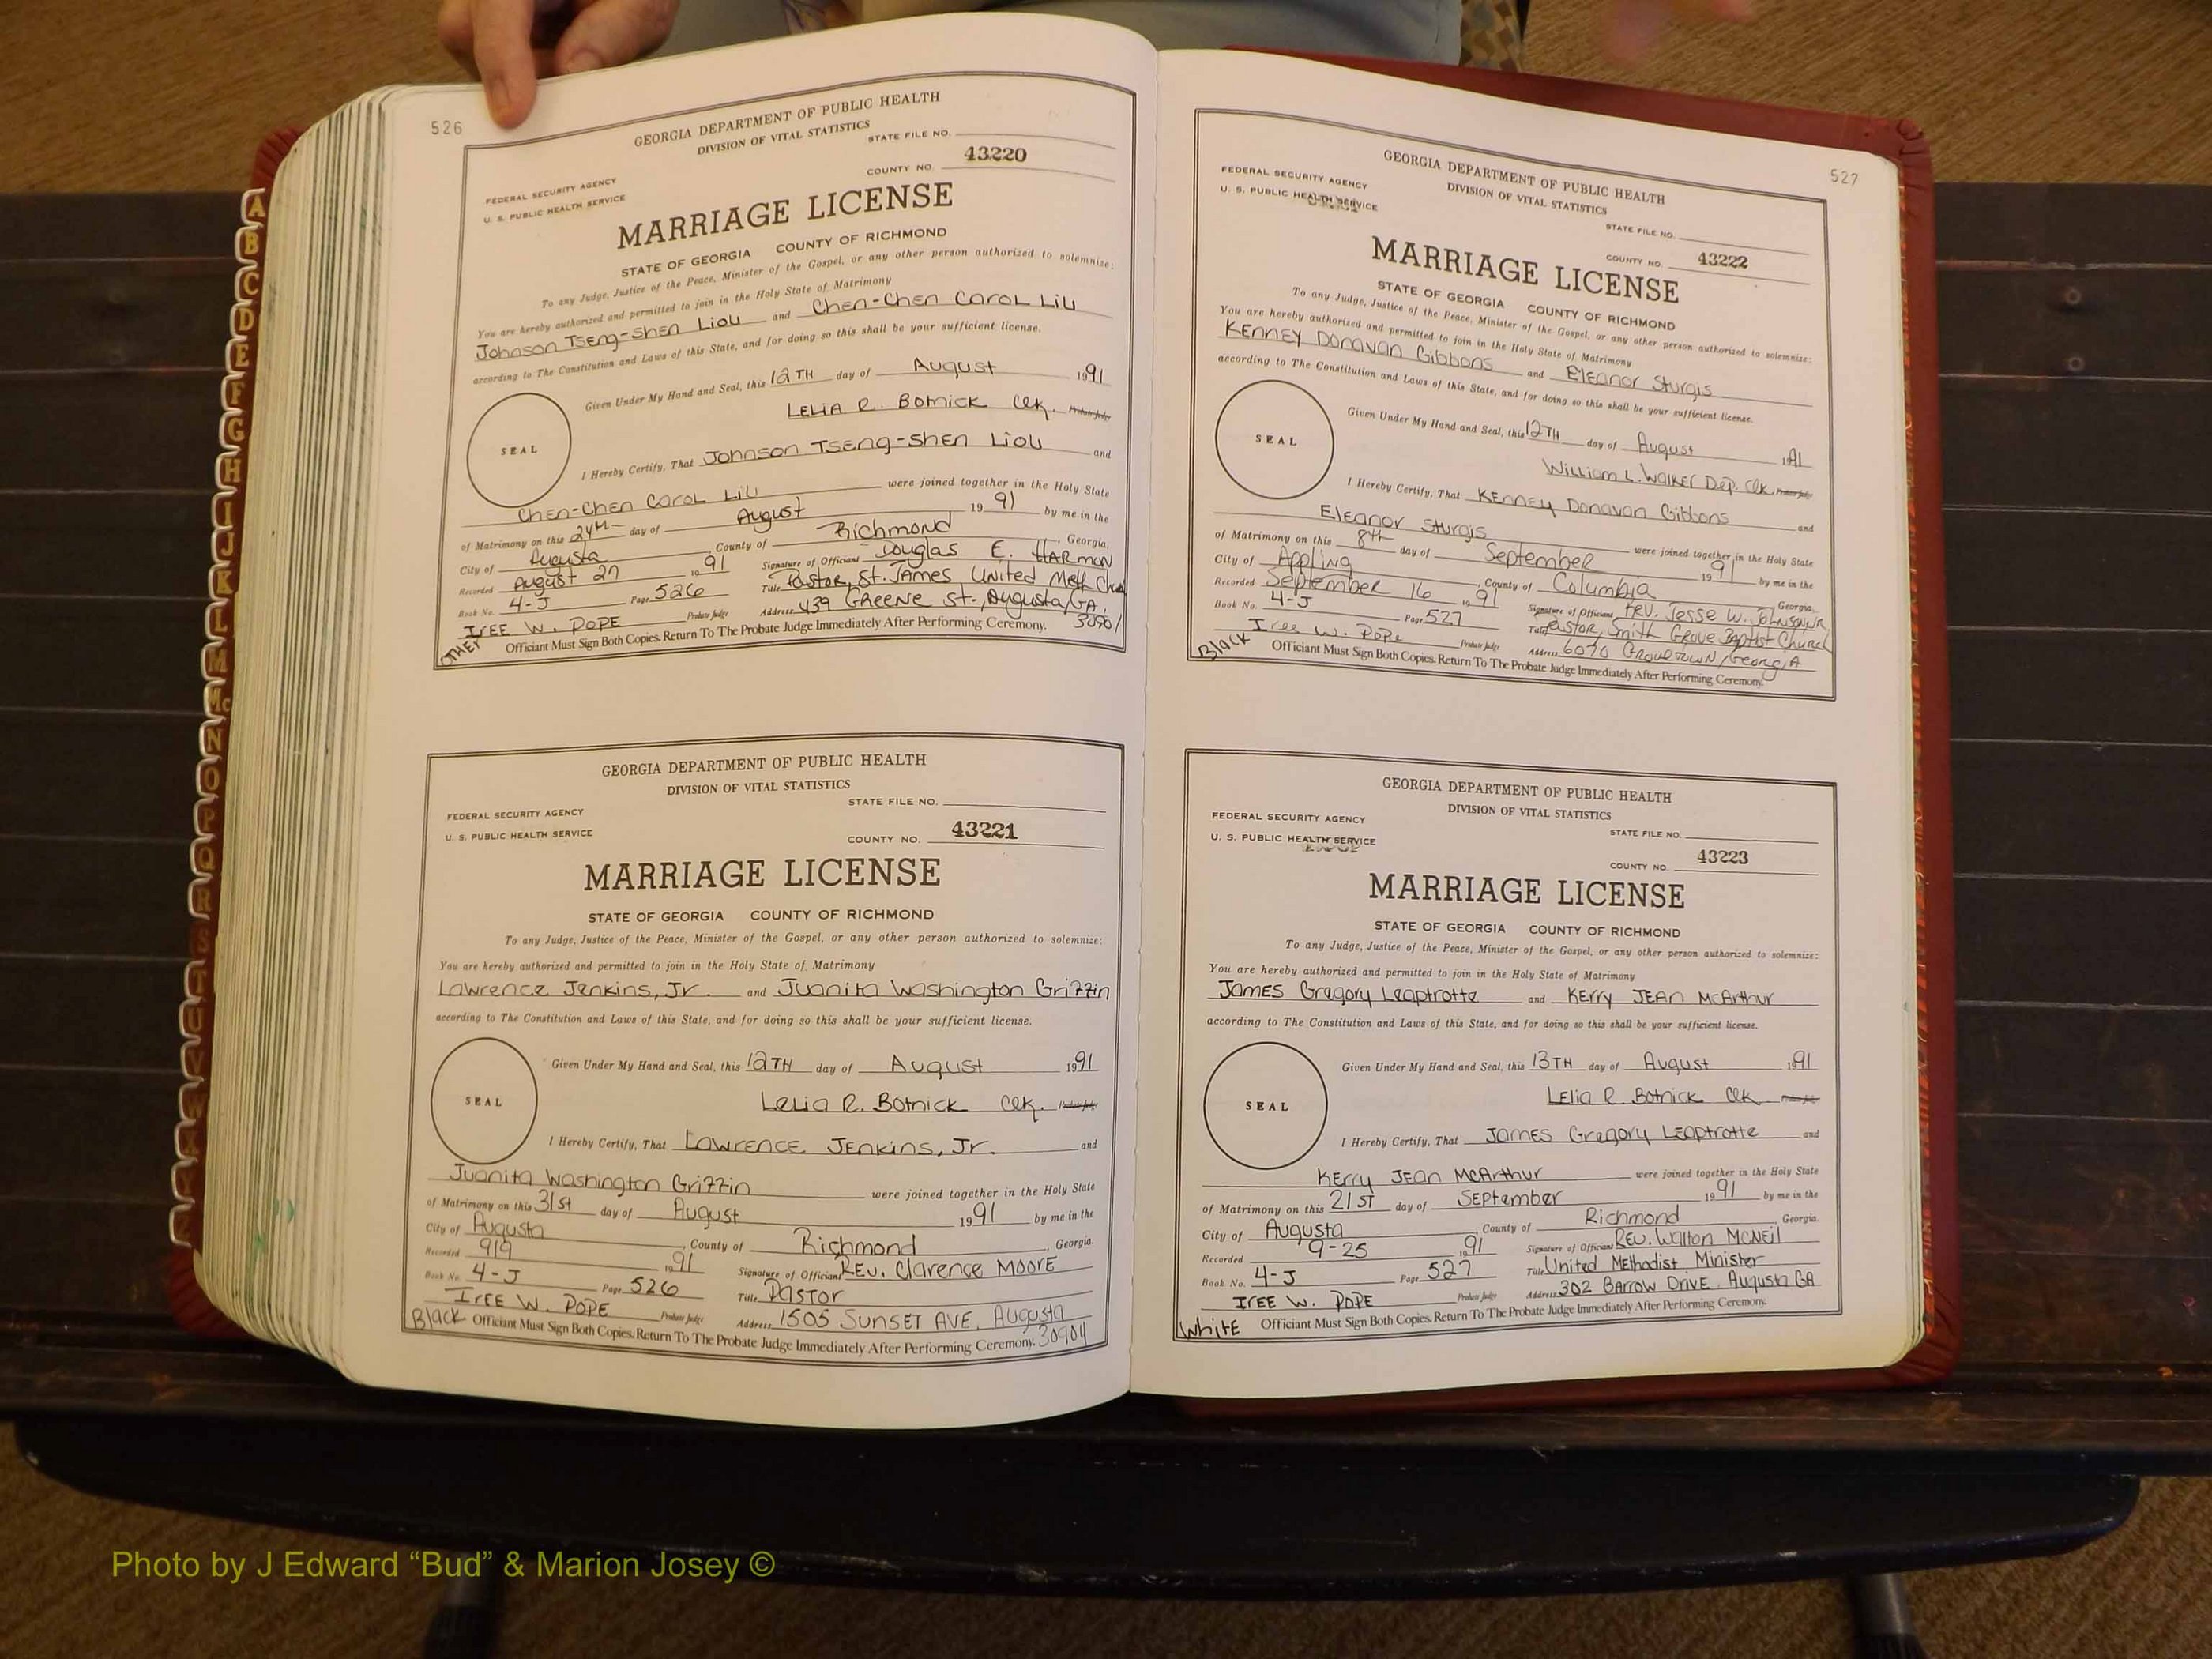 526
GEORGIA DEPARTMENT OF PUBLIC HEALTH
DIVISION OF VITAL STATISTICS
STATE FILE NO.
COUNTY NO. 43220
FEDERAL SECURITY AGENCY
U. S. PUBLIC HEALTH SERVICE
MARRIAGE LICENSE
STATE OF GEORGIA COUNTY OF RICHMOND
To any Judge, Justice of the Peace, Minister of the Gospel, or any other person authorized to solemnize:
You are hereby authorized and permitted to join in the Holy State of Matrimony
Johnson Tseng-shen Liou and Chen-Chen Carol Liu
according to The Constitution and Laws of this State, and for doing so this shall be your sufficient license.
Given Under My Hand and Seal, this 12TH day of August 1991
LELIA R. Botnick Clk. Probate Judge
SEAL
I Hereby Certify, That Johnson Tseng-shen Liou and
Chen-Chen Carol Liu were joined together in the Holy State
of Matrimony on this 24th day of August 1991 by me in the
City of Augusta, County of Richmond, Georgia.
Recorded August 27 1991 Signature of Official Douglas E. Harmon
Book No. 4-J Page 526 Title Pastor, St. James United Meth Church
IREE W. POPE Probate Judge Address 439 Greene St., Augusta, GA. 30901
OTHER Officiant Must Sign Both Copies. Return To The Probate Judge Immediately After Performing Ceremony.
GEORGIA DEPARTMENT OF PUBLIC HEALTH
DIVISION OF VITAL STATISTICS
STATE FILE NO.
FEDERAL SECURITY AGENCY
U. S. PUBLIC HEALTH SERVICE
COUNTY NO. 43221
MARRIAGE LICENSE
STATE OF GEORGIA COUNTY OF RICHMOND
To any Judge, Justice of the Peace, Minister of the Gospel, or any other person authorized to solemnize:
You are hereby authorized and permitted to join in the Holy State of Matrimony
Lawrence Jenkins, Jr. and Juanita Washington Griffin
according to The Constitution and Laws of this State, and for doing so this shall be your sufficient license.
Given Under My Hand and Seal, this 12TH day of August 1991
Lelia R. Botnick Clk. Probate Judge
SEAL
I Hereby Certify, That Lawrence Jenkins, Jr. and
Juanita Washington Griffin were joined together in the Holy State
of Matrimony on this 31st day of August 1991 by me in the
City of Augusta, County of Richmond, Georgia.
Recorded 9/9 1991 Signature of Official Rev. Clarence Moore
Book No. 4-J Page 526 Title Pastor
IREE W. POPE Probate Judge Address 1505 Sunset Ave, Augusta
Black Officiant Must Sign Both Copies. Return To The Probate Judge Immediately After Performing Ceremony. 30904
527
GEORGIA DEPARTMENT OF PUBLIC HEALTH
DIVISION OF VITAL STATISTICS
FEDERAL SECURITY AGENCY
U. S. PUBLIC HEALTH SERVICE
STATE FILE NO.
COUNTY NO. 43222
MARRIAGE LICENSE
STATE OF GEORGIA COUNTY OF RICHMOND
To any Judge, Justice of the Peace, Minister of the Gospel, or any other person authorized to solemnize:
You are hereby authorized and permitted to join in the Holy State of Matrimony
Kenney Donavan Gibbons and Eleanor Sturgis
according to The Constitution and Laws of this State, and for doing so this shall be your sufficient license.
Given Under My Hand and Seal, this 12TH day of August 1991
William L. Walker Dep. Clk. Probate Judge
SEAL
I Hereby Certify, That Kenney Donavan Gibbons and
Eleanor Sturgis were joined together in the Holy State
of Matrimony on this 8th day of September 1991 by me in the
City of Appling, County of Columbia Georgia.
Recorded September 16 1991 Signature of Official Rev. Jesse W. Johnson Jr
Book No. 4-J Page 527 Title Pastor, Smith Grove Baptist Church
Iree W. Pope Probate Judge Address 6070 Grovetown, Georgia
Black Officiant Must Sign Both Copies. Return To The Probate Judge Immediately After Performing Ceremony.
GEORGIA DEPARTMENT OF PUBLIC HEALTH
DIVISION OF VITAL STATISTICS
FEDERAL SECURITY AGENCY
U. S. PUBLIC HEALTH SERVICE
STATE FILE NO.
COUNTY NO. 43223
MARRIAGE LICENSE
STATE OF GEORGIA COUNTY OF RICHMOND
To any Judge, Justice of the Peace, Minister of the Gospel, or any other person authorized to solemnize:
You are hereby authorized and permitted to join in the Holy State of Matrimony
James Gregory Leaptrotte and Kerry Jean McArthur
according to The Constitution and Laws of this State, and for doing so this shall be your sufficient license.
Given Under My Hand and Seal, this 13TH day of August 1991
Lelia R Botnick Clk
SEAL
I Hereby Certify, That James Gregory Leaptrotte and
Kerry Jean McArthur were joined together in the Holy State
of Matrimony on this 21st day of September 1991 by me in the
City of Augusta, County of Richmond Georgia.
Recorded 9-25 1991 Signature of Official Rev. Walton McNeil
Book No. 4-J Page 527 Title United Methodist Minister
IREE W. POPE Probate Judge Address 302 Barrow Drive, Augusta GA
White Officiant Must Sign Both Copies. Return To The Probate Judge Immediately After Performing Ceremony.
A
B
C
D
E
F
G
H
I
J
K
L
M
Mc
N
O
P
Q
R
S
T
U
V
W
Photo by J Edward “Bud” & Marion Josey ©